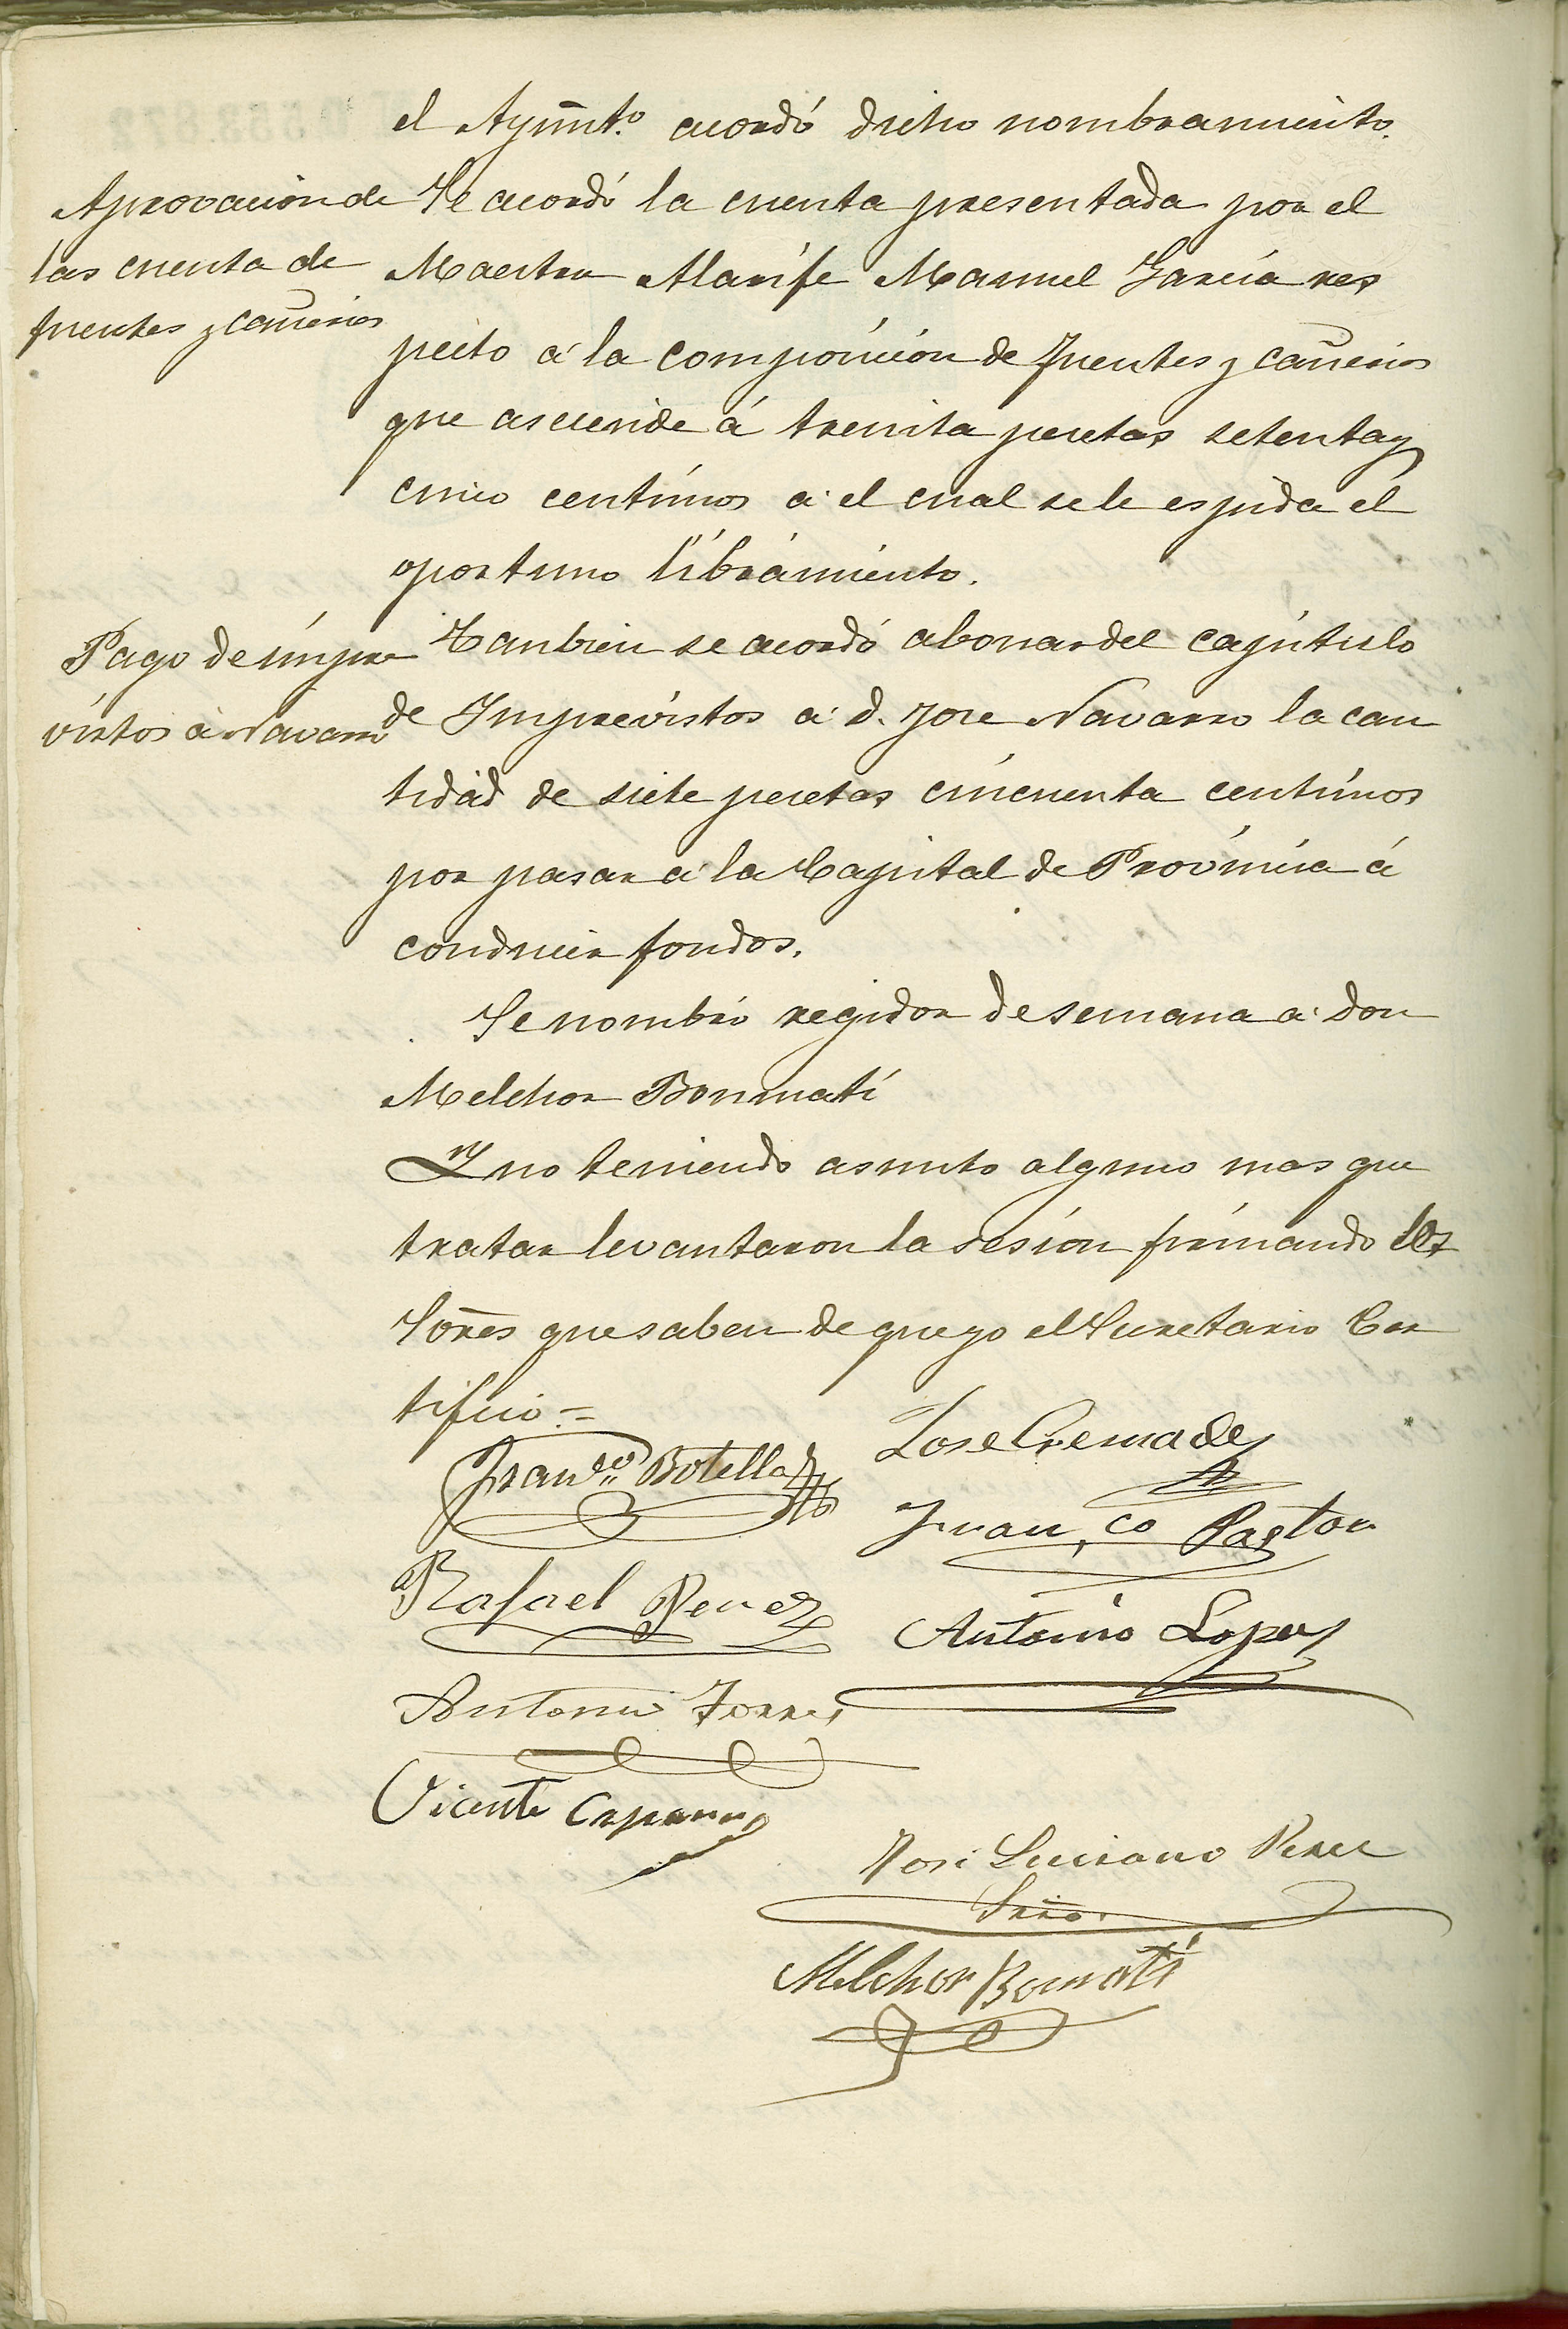 el Aymnt.º acordó dicho nombramiento.
Aprovacion de
las cuenta de
fuentes y cañerios
Se acordó la cuenta presentada por el
Maestro Alarife Manuel Garcia res
pecto á la composicion de fuentes y cañerios
que asciende á treinta pesetas setenta y
cinco centimos a el cual se le espida el
oportuno libramiento.
Pago de impre
vistos á Navarro
Tanbien se acordó abonar del capitulo
de Imprevistos a d. Jose Navarro la can
tidad de siete pesetas cincuenta centimos
por pasar á la Capital de Provincia á
conducir fondos.
Se nombró regidor de semana a don
Melchor Bonmatí
Y no teniendo asunto alguno mas que
tratar levantaron la sesion firmando los
Sores que saben de que yo el Secretario Cer
tifico =
Franco Botella
Jose Cremades
Juan, co Pastor
Rafael Perez
Antonio Lopez
Antonio Torres
Vicente Caparros
José Luciano Perez
Srio.
Melchor Bonmatí